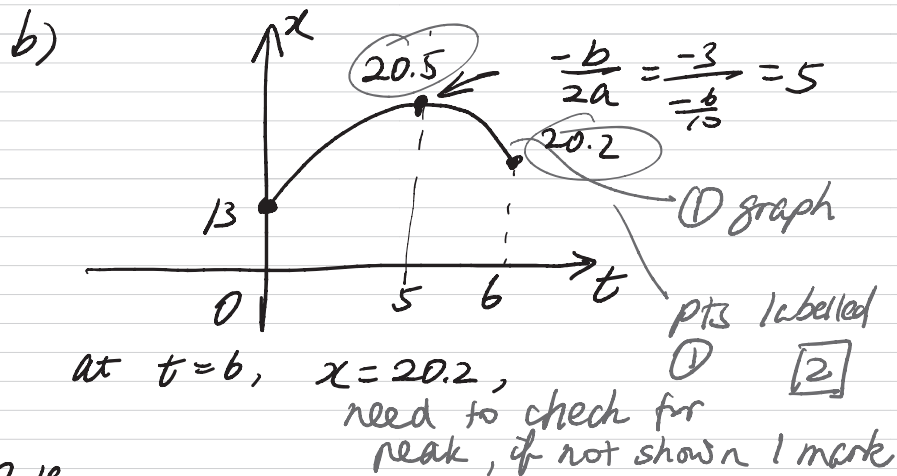 b)
x
20.5
-b/2a = -3/(-6/10) = 5
20.2
13
① graph
0
5
6
t
pts labelled
① 2
at t=6, x=20.2,
need to check for
peak, if not shown 1 mark